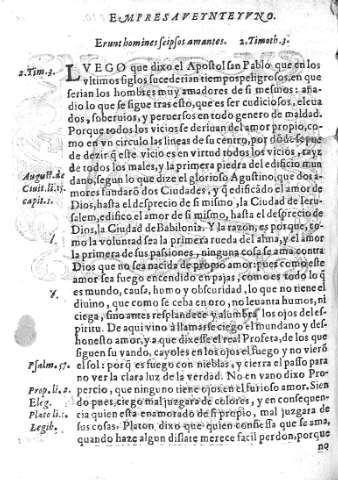 EMPRESA VEYNTEYVNO.
Erunt homines seipsos amantes. 2. Timoth. 3.
2. Tim. 3.
LVEGO que dixo el Apostol san Pablo que en los
vltimos siglos sucederian tiempos peligrosos, en que
serian los hombres muy amadores de si mesmos: aña-
dio lo que se sigue tras esto, que es ser cudiciosos, eleua
dos, soberuios, y peruersos en todo genero de maldad.
Porque todos los vicios se deriuan del amor propio, co-
mo en vn circulo las lineas de su centro, por donde se pue
de dezir q̃ este vicio es en virtud todos los vicios, rayz
de todos los males, y la primera piedra del edificio mun
August. de
Ciuit. li. 14.
capit. 1.
dano, segun lo que dize el glorioso Agustino, que dos a-
mores fundarõ dos Ciudades, y q̃ edificādo el amor de
Dios, hasta el desprecio de si mismo, la Ciudad de Ieru-
salem, edifico el amor de si mismo, hasta el desprecio de
Dios, la Ciudad de Babilonia. Y la razon, es porque, co-
mo la voluntad sea la primera rueda del alma, y el amor
la primera de sus passiones, ninguna cosa se ama contra
Dios que no sea nacida de propio amor: pues como este
amor sea fuego encendido en pajas, como es todo lo q̃
es mundo, causa, humo y obscuridad, lo que no tiene el
diuino, que como se ceba en oro, no leuanta humos, ni
ciega, sino antes resplandece y alumbra los ojos del es-
piritu. De aqui vino a llamarse ciego el mundano y des-
honesto amor, y a que dixesse el real Profeta, de los que
siguen su vando, cayoles en los ojos el fuego y no vierõ
Psalm. 57.
el sol: porq̃ es fuego con nieblas, y cierra el passo para
no ver la clara luz de la verdad. No en vano dixo Pro-
Prop. li. 2.
Eleg.
percio, que ninguno tiene ojos en el furioso amor. Sien
do pues ciego mal juzgara de colores, y en consequen-
Plato li. 5.
Legib.
cia quien esta enamorado de si propio, mal juzgara de
sus cosas. Platon dixo que quien confiessa que se ama,
quando haze algun disate merece facil perdon, porque
no